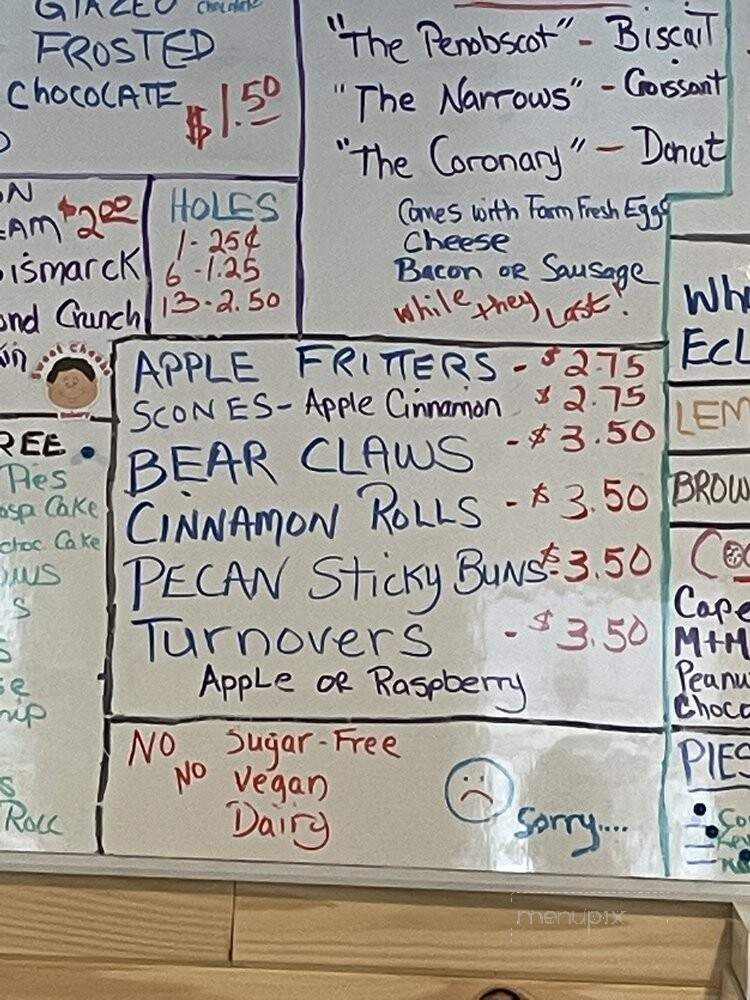 GLAZED Chocolate
FROSTED
CHOCOLATE $1.50
"The Penobscot" - Biscuit
"The Narrows" - Croissant
"The Coronary" - Donut
Comes with Farm Fresh Eggs
Cheese
Bacon or Sausage
while they Last!
$2.00
Bismarck
Crunch
HOLES
1 - 25¢
6 - 1.25
13 - 2.50
APPLE FRITTERS - $2.75
SCONES - Apple Cinnamon $2.75
BEAR CLAWS - $3.50
CINNAMON ROLLS - $3.50
PECAN Sticky BUNS - $3.50
Turnovers - $3.50
Apple or Raspberry
NO Sugar-Free
NO Vegan
Dairy
Sorry....
REE
Pies
Cake
choc Cake
Roll
Sweet Cheeks
Bakery
Wh
ECL
LEM
BROW
Coo
Cape
M+M
Peanu
Choco
PIES
menupix